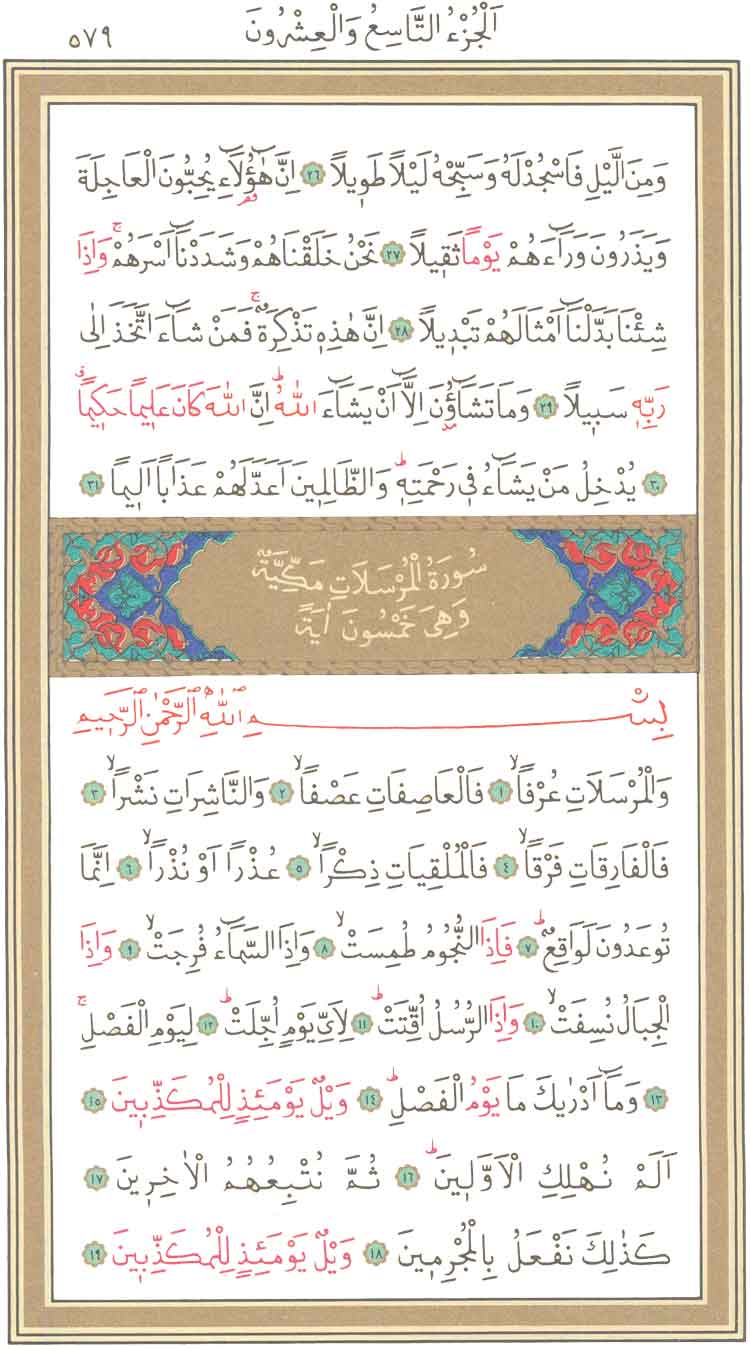 اَلْجُزْءُ التَّاسِعُ وَالْعِشْرُونَ ٥٧٩
وَمِنَ الَّيْلِ فَاسْجُدْ لَهُ وَسَبِّحْهُ لَيْلًا طَوٖيلًا ٢٦ اِنَّ هٰٓؤُلَٓاءِ يُحِبُّونَ الْعَاجِلَةَ
وَيَذَرُونَ وَرَٓاءَهُمْ يَوْمًا ثَقٖيلًا ٢٧ نَحْنُ خَلَقْنَاهُمْ وَشَدَدْنَٓا اَسْرَهُمْۚ وَاِذَا
شِئْنَا بَدَّلْنَٓا اَمْثَالَهُمْ تَبْدٖيلًا ٢٨ اِنَّ هٰذِهٖ تَذْكِرَةٌۚ فَمَنْ شَٓاءَ اتَّخَذَ اِلٰى
رَبِّهٖ سَبٖيلًا ٢٩ وَمَا تَشَٓاؤُ۫نَ اِلَّٓا اَنْ يَشَٓاءَ اللّٰهُؕ اِنَّ اللّٰهَ كَانَ عَلٖيمًا حَكٖيمًاࣗ
٣٠ يُدْخِلُ مَنْ يَشَٓاءُ فٖى رَحْمَتِهٖؕ وَالظَّالِمٖينَ اَعَدَّ لَهُمْ عَذَابًا اَلٖيمًا ٣١
سُورَةُ الْمُرْسَلَاتِ مَكِّيَّةٌ
وَهِىَ خَمْسُونَ اٰيَةً
بِسْمِ اللّٰهِ الرَّحْمٰنِ الرَّحٖيمِ
وَالْمُرْسَلَاتِ عُرْفًاۙ ١ فَالْعَاصِفَاتِ عَصْفًاۙ ٢ وَالنَّاشِرَاتِ نَشْرًاۙ ٣
فَالْفَارِقَاتِ فَرْقًاۙ ٤ فَالْمُلْقِيَاتِ ذِكْرًاۙ ٥ عُذْرًا اَوْ نُذْرًاۙ ٦ اِنَّمَا
تُوعَدُونَ لَوَاقِعٌؕ ٧ فَاِذَا النُّجُومُ طُمِسَتْۙ ٨ وَاِذَا السَّمَٓاءُ فُرِجَتْۙ ٩ وَاِذَا
الْجِبَالُ نُسِفَتْۙ ١٠ وَاِذَا الرُّسُلُ اُقِّتَتْؕ ١١ لِاَىِّ يَوْمٍ اُجِّلَتْؕ ١٢ لِيَوْمِ الْفَصْلِۚ
١٣ وَمَٓا اَدْرٰيكَ مَا يَوْمُ الْفَصْلِؕ ١٤ وَيْلٌ يَوْمَئِذٍ لِلْمُكَذِّبٖينَ ١٥
اَلَمْ نُهْلِكِ الْاَوَّلٖينَؕ ١٦ ثُمَّ نُتْبِعُهُمُ الْاٰخِرٖينَ ١٧
كَذٰلِكَ نَفْعَلُ بِالْمُجْرِمٖينَ ١٨ وَيْلٌ يَوْمَئِذٍ لِلْمُكَذِّبٖينَ ١٩